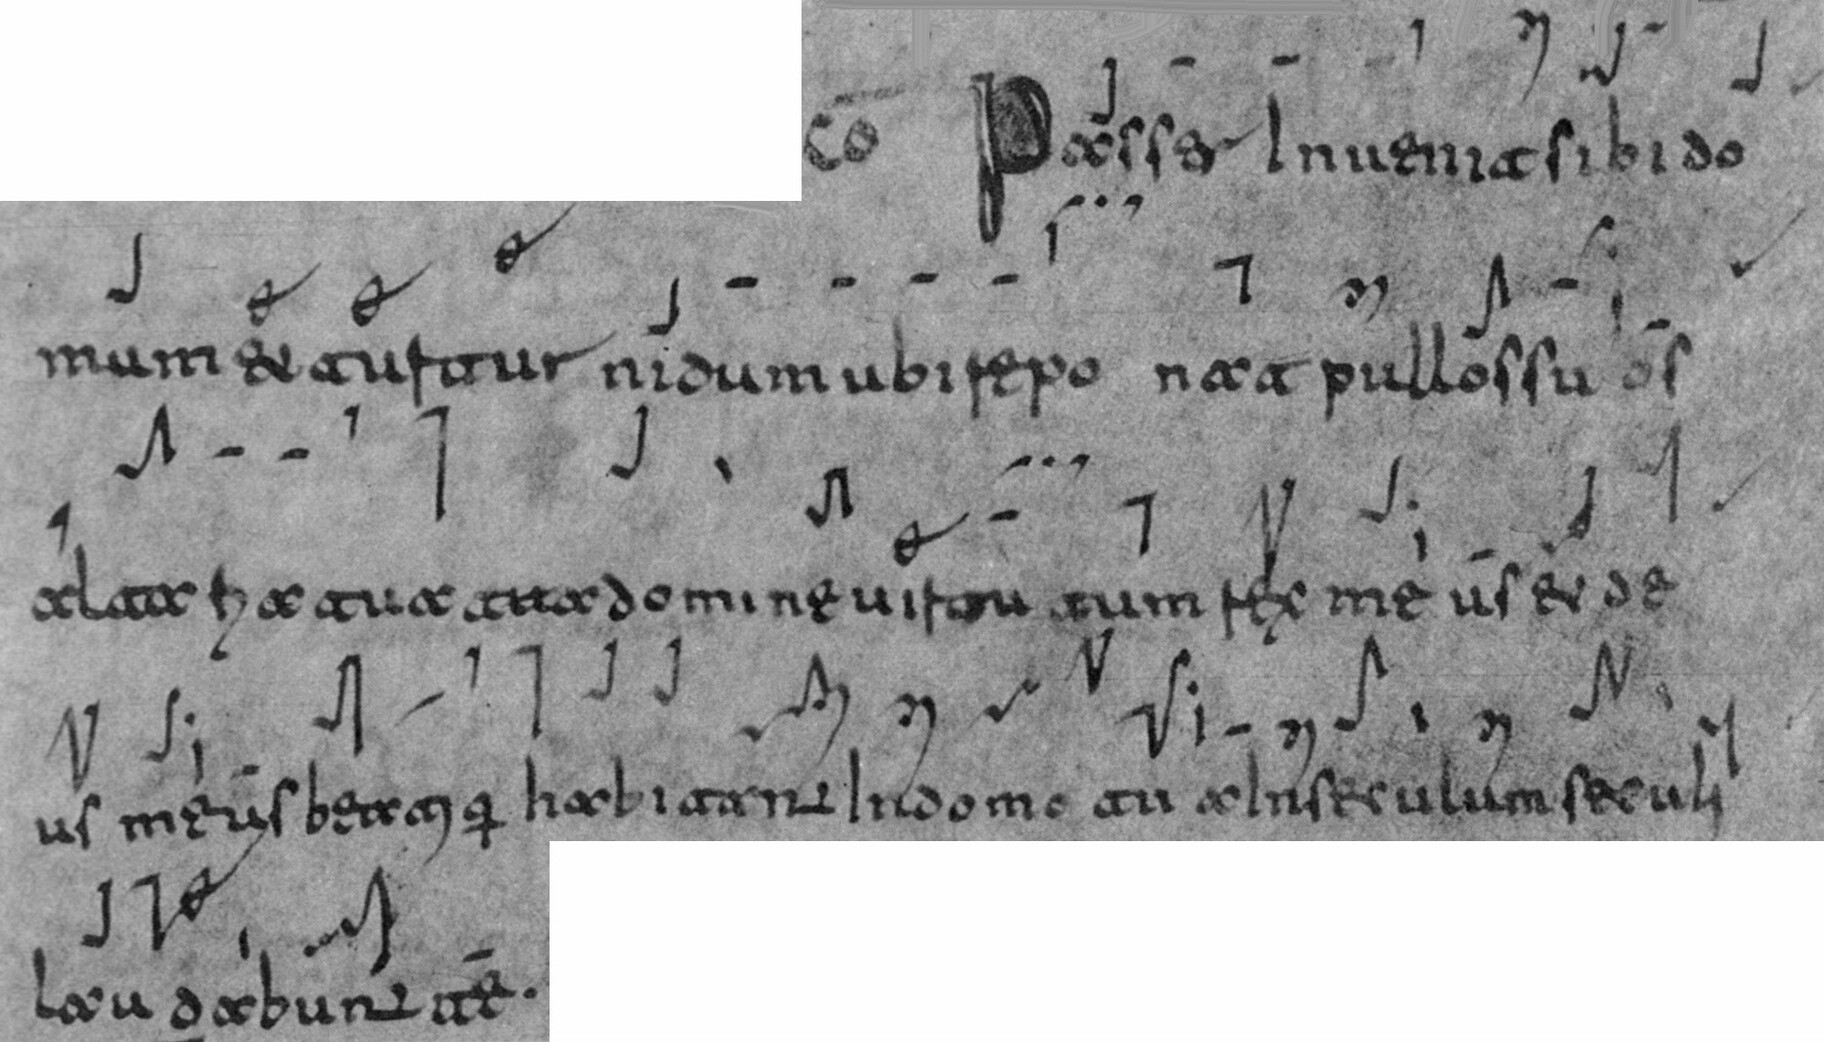 co Passer Inuenit sibi do
mum & turtur nidum ubi repo nat pullos su os
altaria tua domine uirtu tum rex me us & de
us meus beati qi habitant In domo tu a In seculum seculi
lau dabunt te.